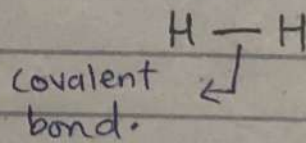 H — H
covalent
bond.